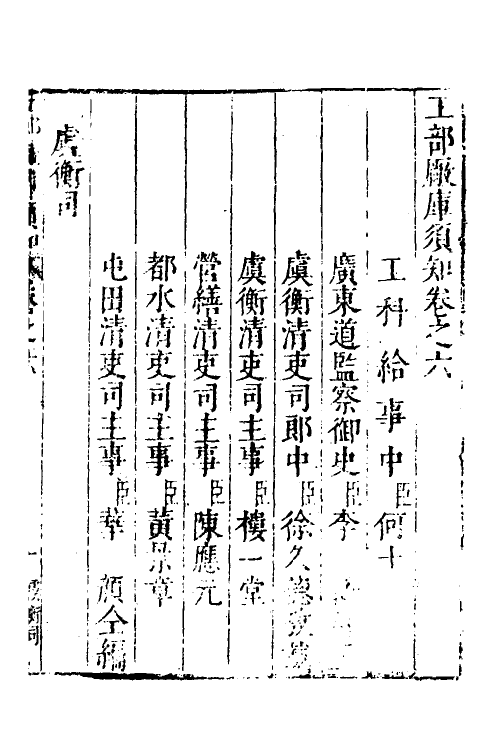 工部廠庫須知卷之六
工科給事中臣何士
廣東道監察御史臣李
虞衡清吏司郎中臣徐久德
虞衡清吏司主事臣樓一堂
營繕清吏司主事臣陳應元
都水清吏司主事臣黃景章
屯田清吏司主事臣華顏仝編
虞衡司